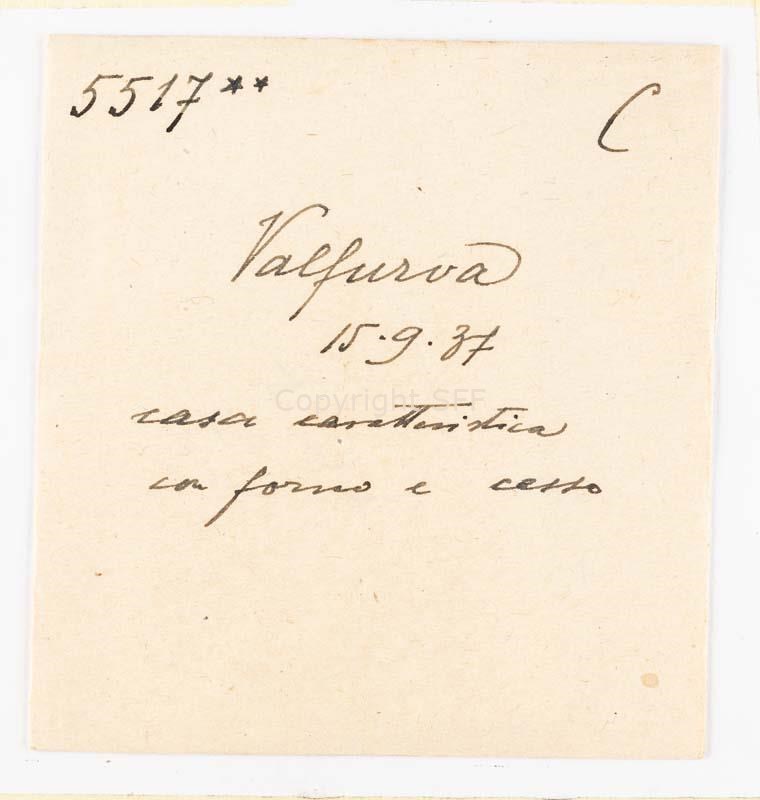 5517** C
Valfurva
15.9.37
Copyright SEF
casa caratteristica
con forno e cesso